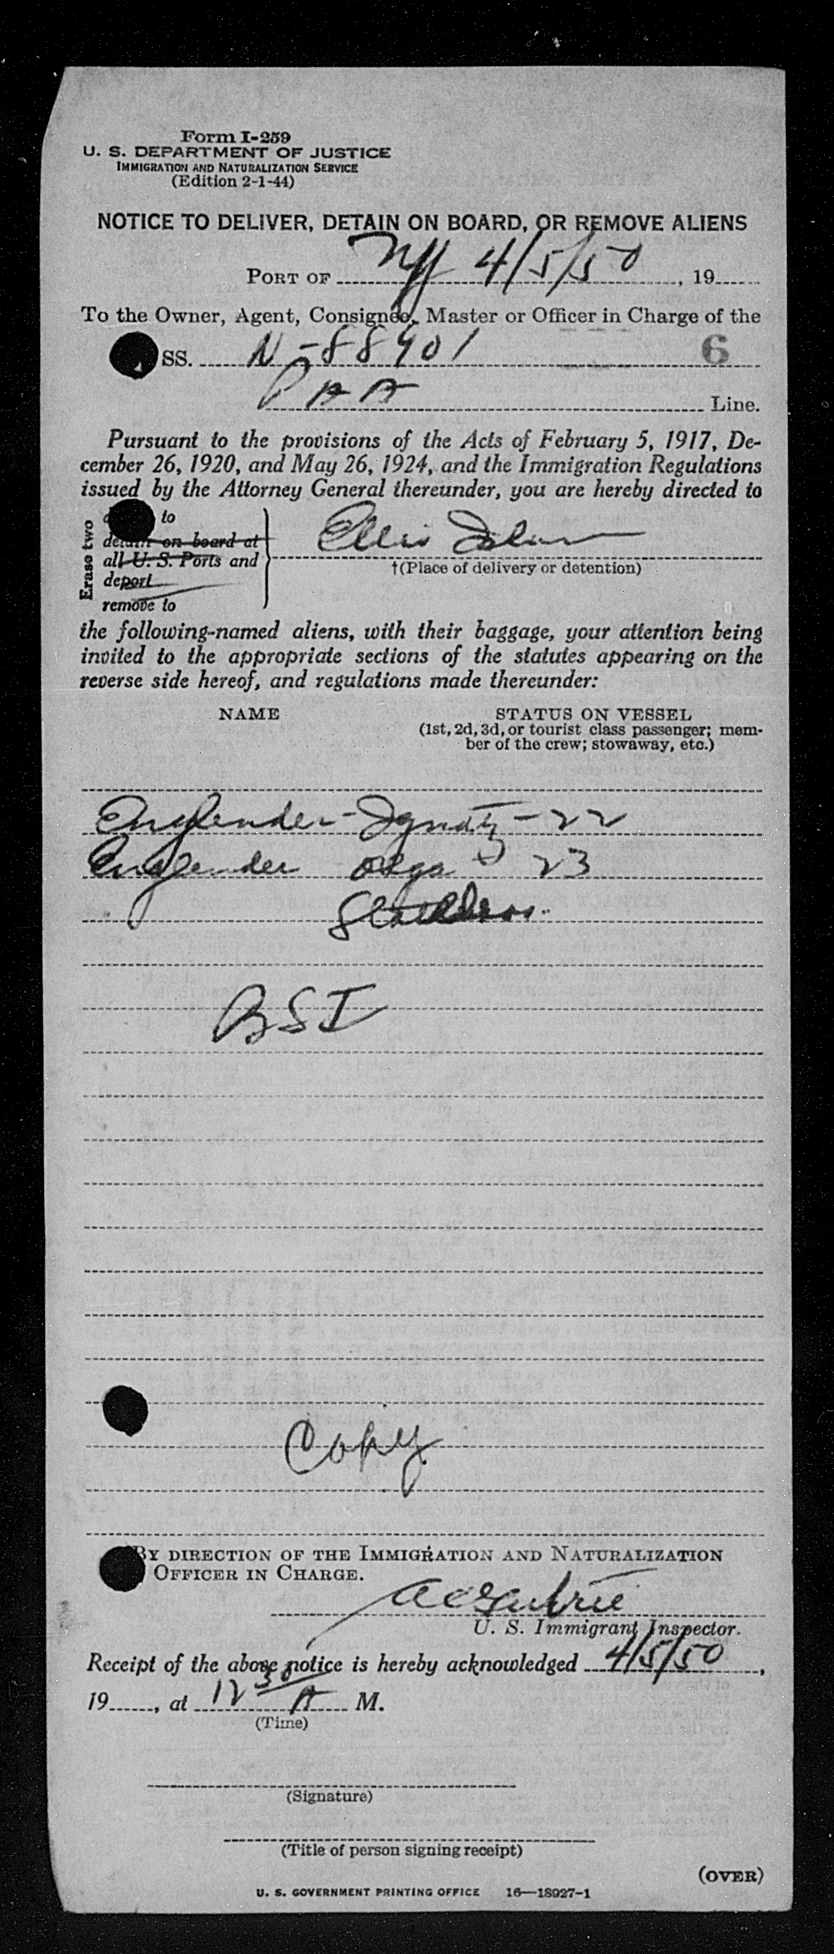 Form I-259
U. S. DEPARTMENT OF JUSTICE
IMMIGRATION AND NATURALIZATION SERVICE
(Edition 2-1-44)
NOTICE TO DELIVER, DETAIN ON BOARD, OR REMOVE ALIENS
PORT OF NY 4/5/50, 19
To the Owner, Agent, Consignee, Master or Officer in Charge of the
SS. N-88901 6
PAA Line.
Pursuant to the provisions of the Acts of February 5, 1917, De-
cember 26, 1920, and May 26, 1924, and the Immigration Regulations
issued by the Attorney General thereunder, you are hereby directed to
Erase two
to
detain on board at
all U. S. Ports and
deport
remove to
Ellis Island
†(Place of delivery or detention)
the following-named aliens, with their baggage, your attention being
invited to the appropriate sections of the statutes appearing on the
reverse side hereof, and regulations made thereunder:
NAME STATUS ON VESSEL
(1st, 2d, 3d, or tourist class passenger; mem-
ber of the crew; stowaway, etc.)
Englender - Ignatz - 22
Englender Olga 23
BSI
Copy
BY DIRECTION OF THE IMMIGRATION AND NATURALIZATION
OFFICER IN CHARGE.
U. S. Immigrant Inspector.
Receipt of the above notice is hereby acknowledged 4/5/50,
19, at 12 30 A M.
(Time)
(Signature)
(Title of person signing receipt)
(OVER)
U. S. GOVERNMENT PRINTING OFFICE 16—18927-1